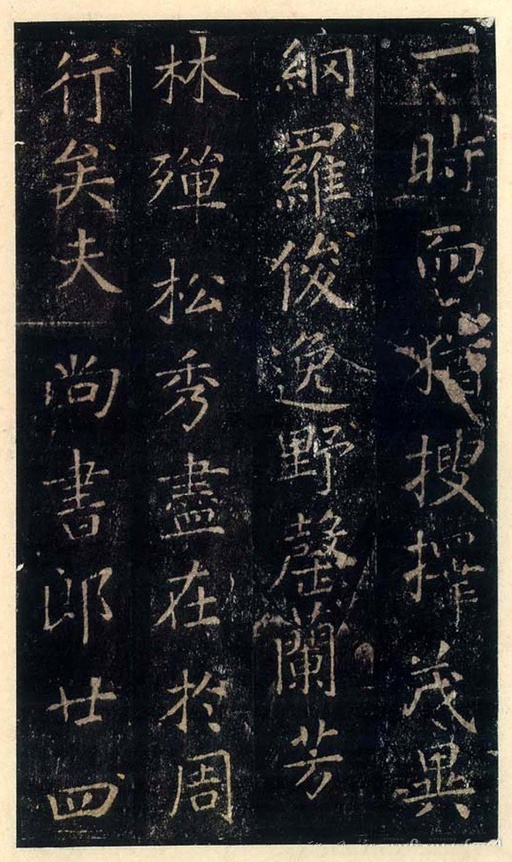 一時而猶搜擇茂異
網羅俊逸野罄蘭芳
林殫松秀盡在於周
行矣夫尚書郎廿四